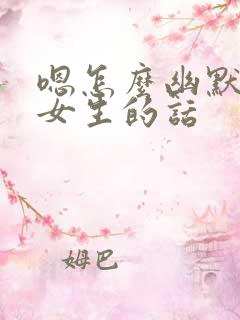 嗯怎麼幽默
女生的話
姆巴